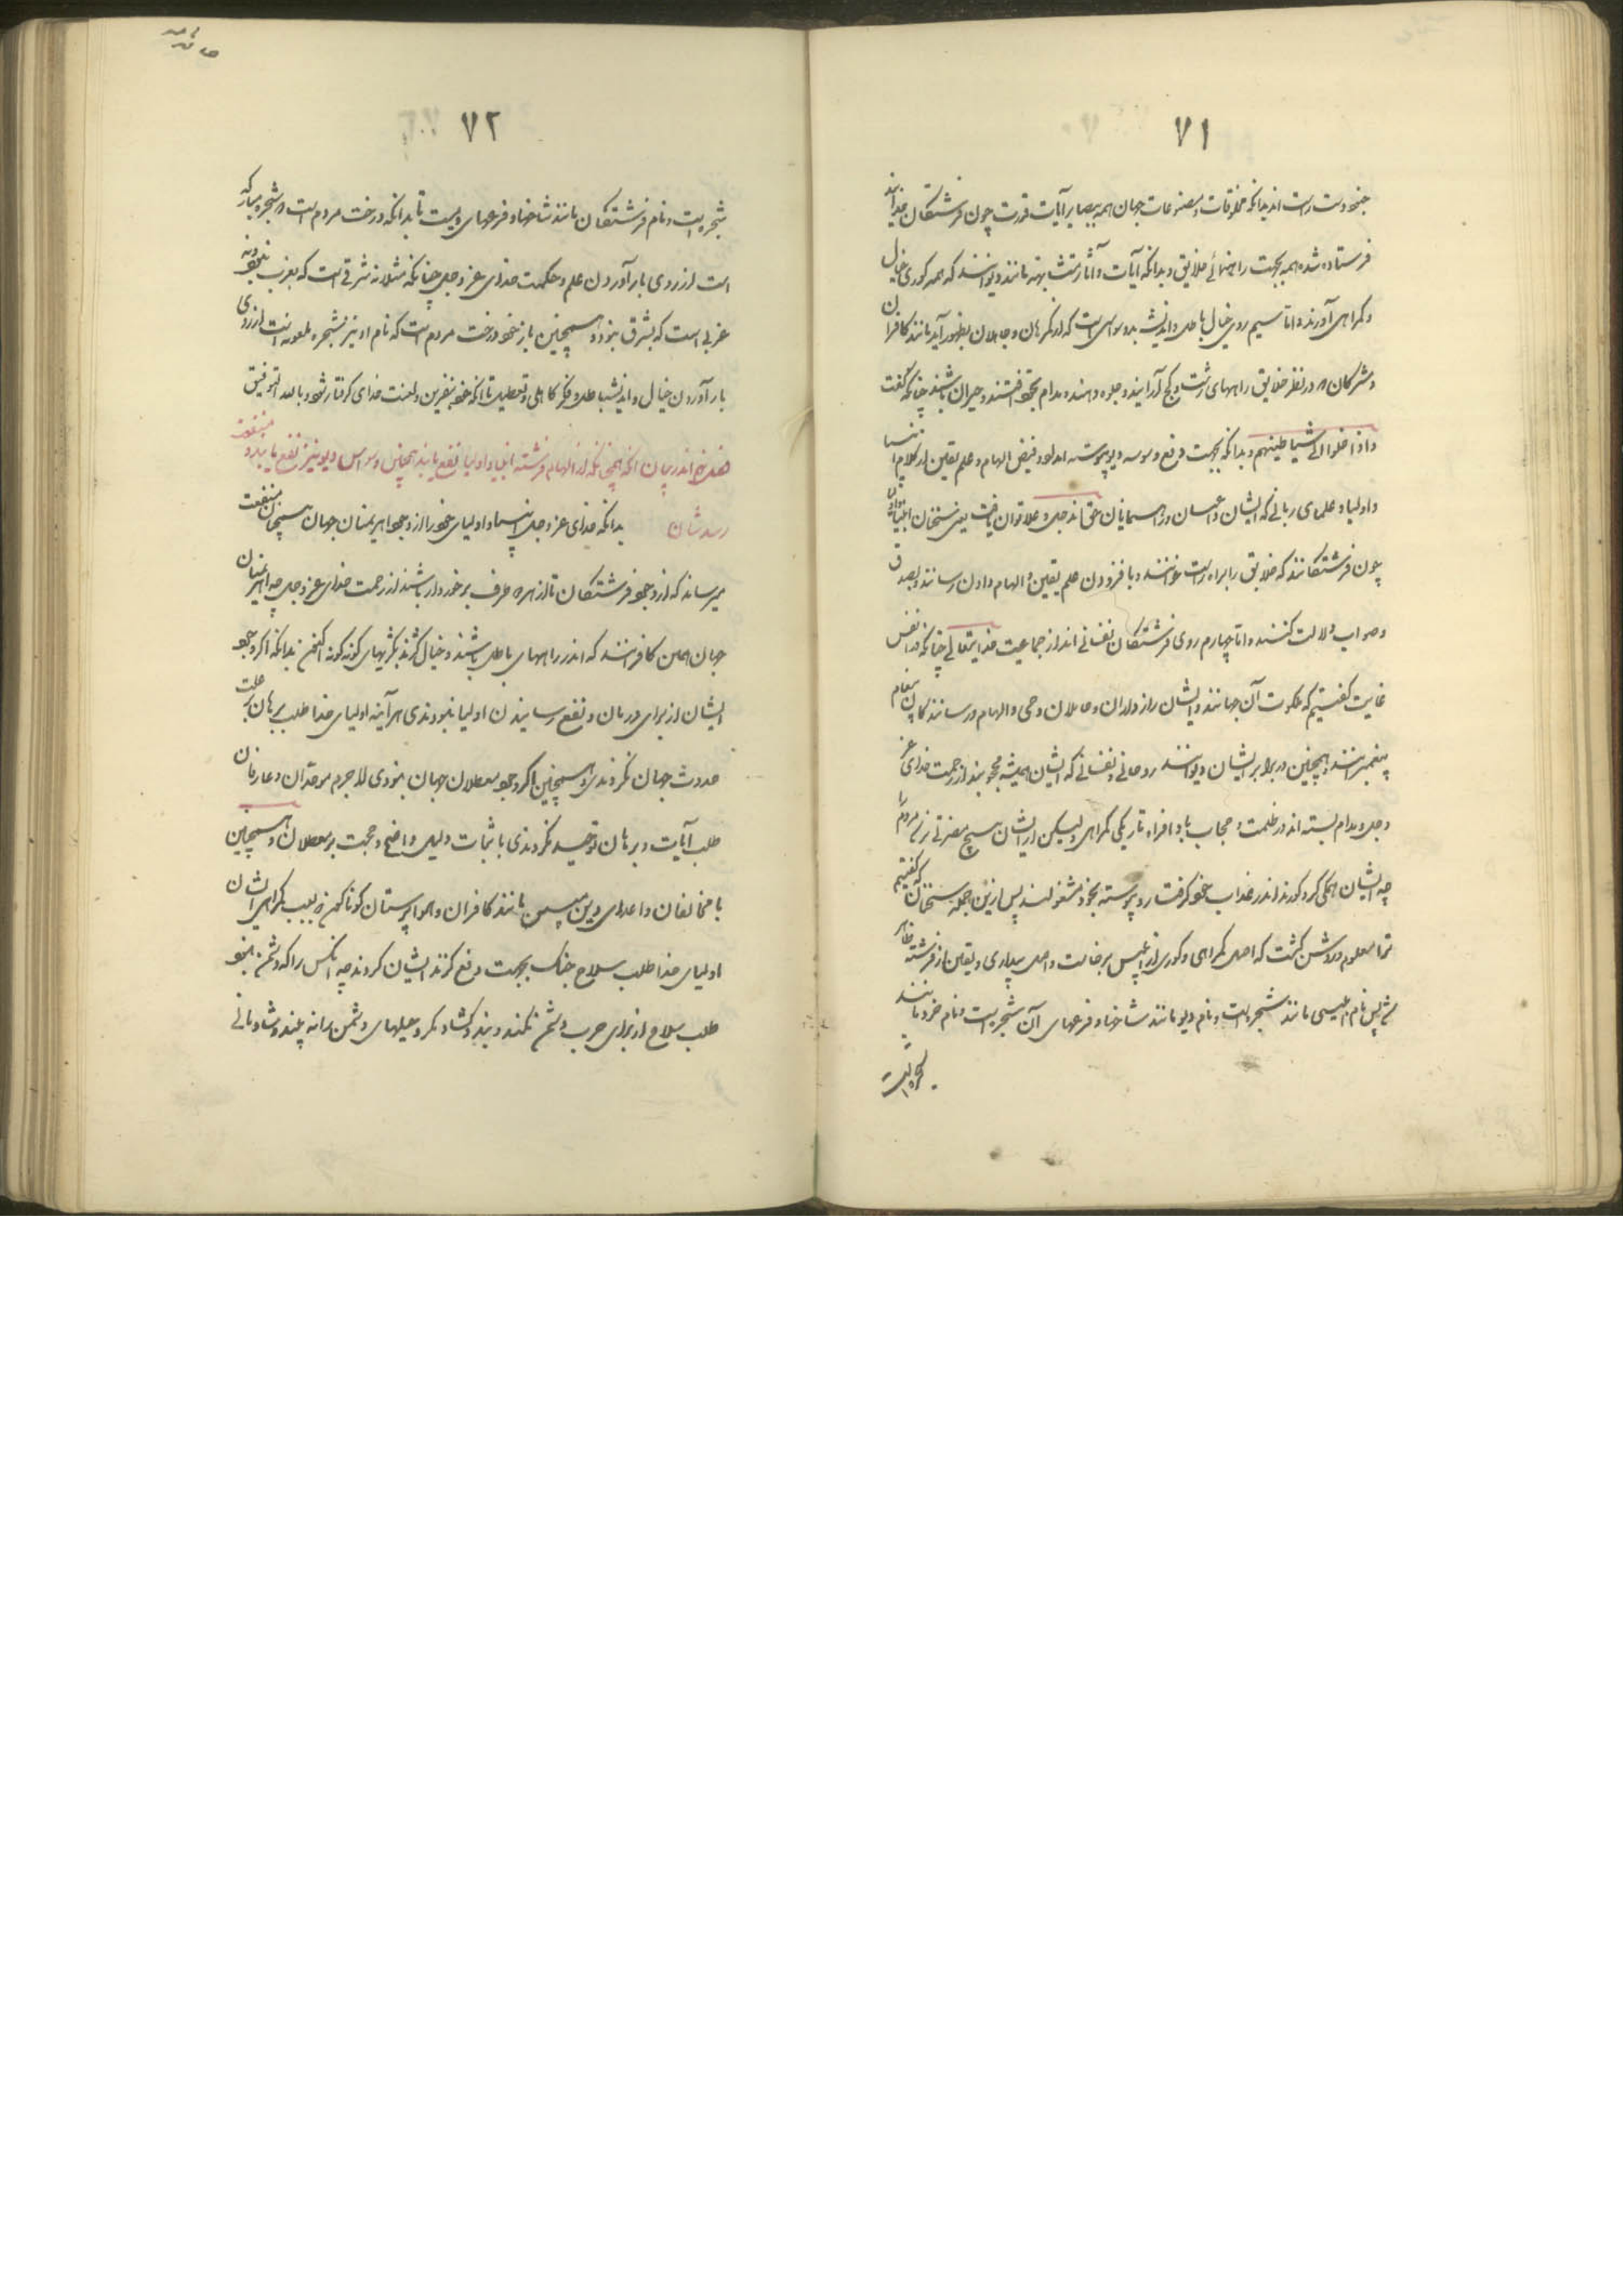 ۷۱
جنود دست راست اند بدانکه مخلوقات و مصنوعات جهان همه بصایر آیات قدرت چون فرشتگان خدا اند
فرستاده شده همه بجهت راهنمائے خلایق و بدانکه آیات و آثار متشابهه مانند دیوانند که همه کوری خیال
و گمراهی آورند و اما سیم روی خیال باطل و اندیشه بد وسواس است که از گمرهان و جاهلان بظهور آید مانند کافران
و مشرکان در نظر خلایق راههای زشت و کج آرایند و جلوه دهند و مدام بحق افتند و حیران باشند چنانکه گفت
و اذا خلوا الی شیاطینهم و بدانکه بجهت دفع وسوسه دیو پیوسته امداد و فیض الهام و علم یقین از کلام انبیا
و اولیا و علمای ربانے که ایشان داعیان و راهنمایان حق اند جل و علا توان یافت یعنی سخنان انبیا و اولیا
چون فرشتگانند که خلایق را براه راست خوانند و با فزودن علم یقین و الهام دادن رسانند و بصدق
و صواب دلالت کنند و اما چهارم روی فرشتگان نفسانے اند از جماعیت خدایتعالے چنانکه در نفس
غایت گفتیم که ملکوت آن جهانند و ایشان رازداران و حاملان وحی و الهام و رسانندگان پیغام
پیغمبرانند و همچنین در برابر ایشان دیوانند روحانے و نفسانے که ایشان همیشه محجوبند از رحمت خدای عز
و جل و مدام بسته اند در ظلمت و حجاب باد افراه تاریکی گمراهی و لیکن از ایشان هیچ مضرتے نرسد مردم را
چه ایشان همگی کر و کورند اندر عذاب خود گرفتار و پیوسته بخود مشغولند پس ازین جمله سخنان که گفتیم
ترا معلوم و روشن گشت که اصل گمراهی و کوری از ابلیس برخاست و اصل بیداری و یقین از فرشته ظاهر
شد پس نام ابلیس مانند شجره است و نام دیو مانند شاخها و فرعهای آن شجر است و نام خرد مانند
شجره است
۷۲
شجره است و نام فرشتگان مانند شاخها و فرعهای ویست تا بدانکه درخت مردم است شجره مبارکه
است از روی بار آوردن علم و حکمت خدای عز و جل چنانکه مثلا نه شرقی است که بغرب نبود و نه
غربی است که بشرق نبود و همچنین باز خود درخت مردم است که نام او نیز شجره ملعونه است از روی
بار آوردن خیال و اندیشه باطل و فکر کاهلی و تعطیل تا آنکه خود بنفرین و لعنت خدای گرفتار شود و بالله التوفیق
اندر بیان آنکه همچنانکه از الهام فرشته انبیا و اولیا نفع یابند همچنین وسواس دیو نیز نفع یابند و منفعت
رسدشان بدانکه خدای عز و جل انبیا و اولیای خود را از وجود اهریمنان جهان همچنان منفعت
میرساند که از وجود فرشتگان تا از هر دو طرف برخوردار باشند از رحمت خدای عز و جل چه اهریمنان
جهان همین کافرانند که اندر راههای باطل باشند و خیال کژند بکژیهای گونه گونه افکنند بدانکه اگر وجود
ایشان از برای درمان و نفع رسانیدن اولیا نبودندی هر آینه اولیای خدا طلب برهان علت
حدوث جهان نکردندی و همچنین اگر وجود معطلان جهان نبودی لا جرم موحدان و عارفان
طلب آیات و برهان توحید نکردندی باثبات دلیل واضح و حجت بر معطلان و همچنین
با مخالفان و اعدای دین مبین مانند کافران و هواپرستان گوناگون بسبب گمراهی ایشان
اولیای خدا طلب سلاح جنگ بجهت دفع گزند ایشان کردند چه آنکس را که دشمن نبود
طلب سلاح از برای حرب دشمن نکند و بند و گشاد مکر و حیلهای دشمن را نه بیند و شادمانے